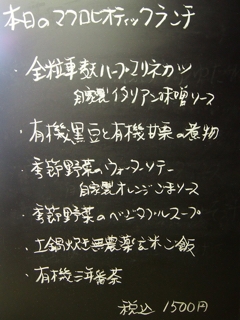 本日のマクロビオティックランチ
・全粒車麩ハーブマリネカツ
自家製イタリアン味噌ソース
・有機黒豆と有機甘栗の煮物
・季節野菜のウォーターソテー
自家製オレンジごまソース
・季節野菜のベジタブルスープ
・土鍋炊き無農薬玄米ご飯
・有機三年番茶
税込 1500円